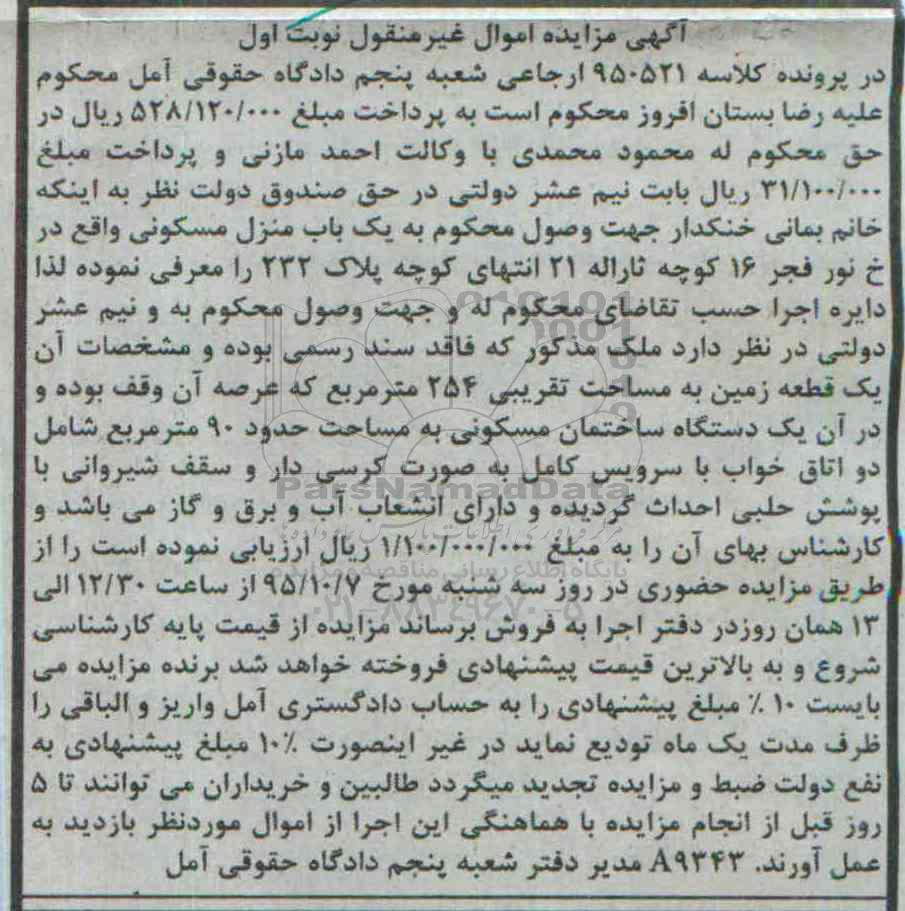 آگهی مزایده اموال غیرمنقول نوبت اول
در پرونده کلاسه ۹۵۰۵۲۱ ارجاعی شعبه پنجم دادگاه حقوقی آمل محکوم
علیه رضا بستان افروز محکوم است به پرداخت مبلغ ۵۲۸/۱۲۰/۰۰۰ ریال در
حق محکوم له محمود محمدی با وکالت احمد مازنی و پرداخت مبلغ
۳۱/۱۰۰/۰۰۰ ریال بابت نیم عشر دولتی در حق صندوق دولت نظر به اینکه
خانم یمانی خنکدار جهت وصول محکوم به یک باب منزل مسکونی واقع در
خ نور فجر ۱۶ کوچه ثاراله ۲۱ انتهای کوچه پلاک ۲۳۲ را معرفی نموده لذا
دایره اجرا حسب تقاضای محکوم له و جهت وصول محکوم به و نیم عشر
دولتی در نظر دارد ملک مذکور که فاقد سند رسمی بوده و مشخصات آن
یک قطعه زمین به مساحت تقریبی ۲۵۴ مترمربع که عرصه آن وقف بوده و
در آن یک دستگاه ساختمان مسکونی به مساحت حدود ۹۰ مترمربع شامل
دو اتاق خواب با سرویس کامل به صورت کرسی دار و سقف شیروانی با
ParsNamadData
پوشش حلبی احداث گردیده و دارای انشعاب آب و برق و گاز می باشد و
کارشناس بهای آن را به مبلغ ۱/۱۰۰/۰۰۰/۰۰۰ ریال ارزیابی نموده است را از
پایگاه اطلاع رسانی مناقصه و مزایده
طریق مزایده حضوری در روز سه شنبه مورخ ۹۵/۱۰/۷ از ساعت ۱۲/۳۰ الی
۰۲۱-۸۸۳۴۹۶۷۰-۵
۱۳ همان روزدر دفتر اجرا به فروش برساند مزایده از قیمت پایه کارشناسی
شروع و به بالاترین قیمت پیشنهادی فروخته خواهد شد برنده مزایده می
بایست ۱۰ ٪ مبلغ پیشنهادی را به حساب دادگستری آمل واریز و الباقی را
ظرف مدت یک ماه تودیع نماید در غیر اینصورت ۱۰٪ مبلغ پیشنهادی به
نفع دولت ضبط و مزایده تجدید میگردد طالبین و خریداران می توانند تا ۵
روز قبل از انجام مزایده با هماهنگی این اجرا از اموال موردنظر بازدید به
عمل آورند. A۹۳۴۳ مدیر دفتر شعبه پنجم دادگاه حقوقی آمل